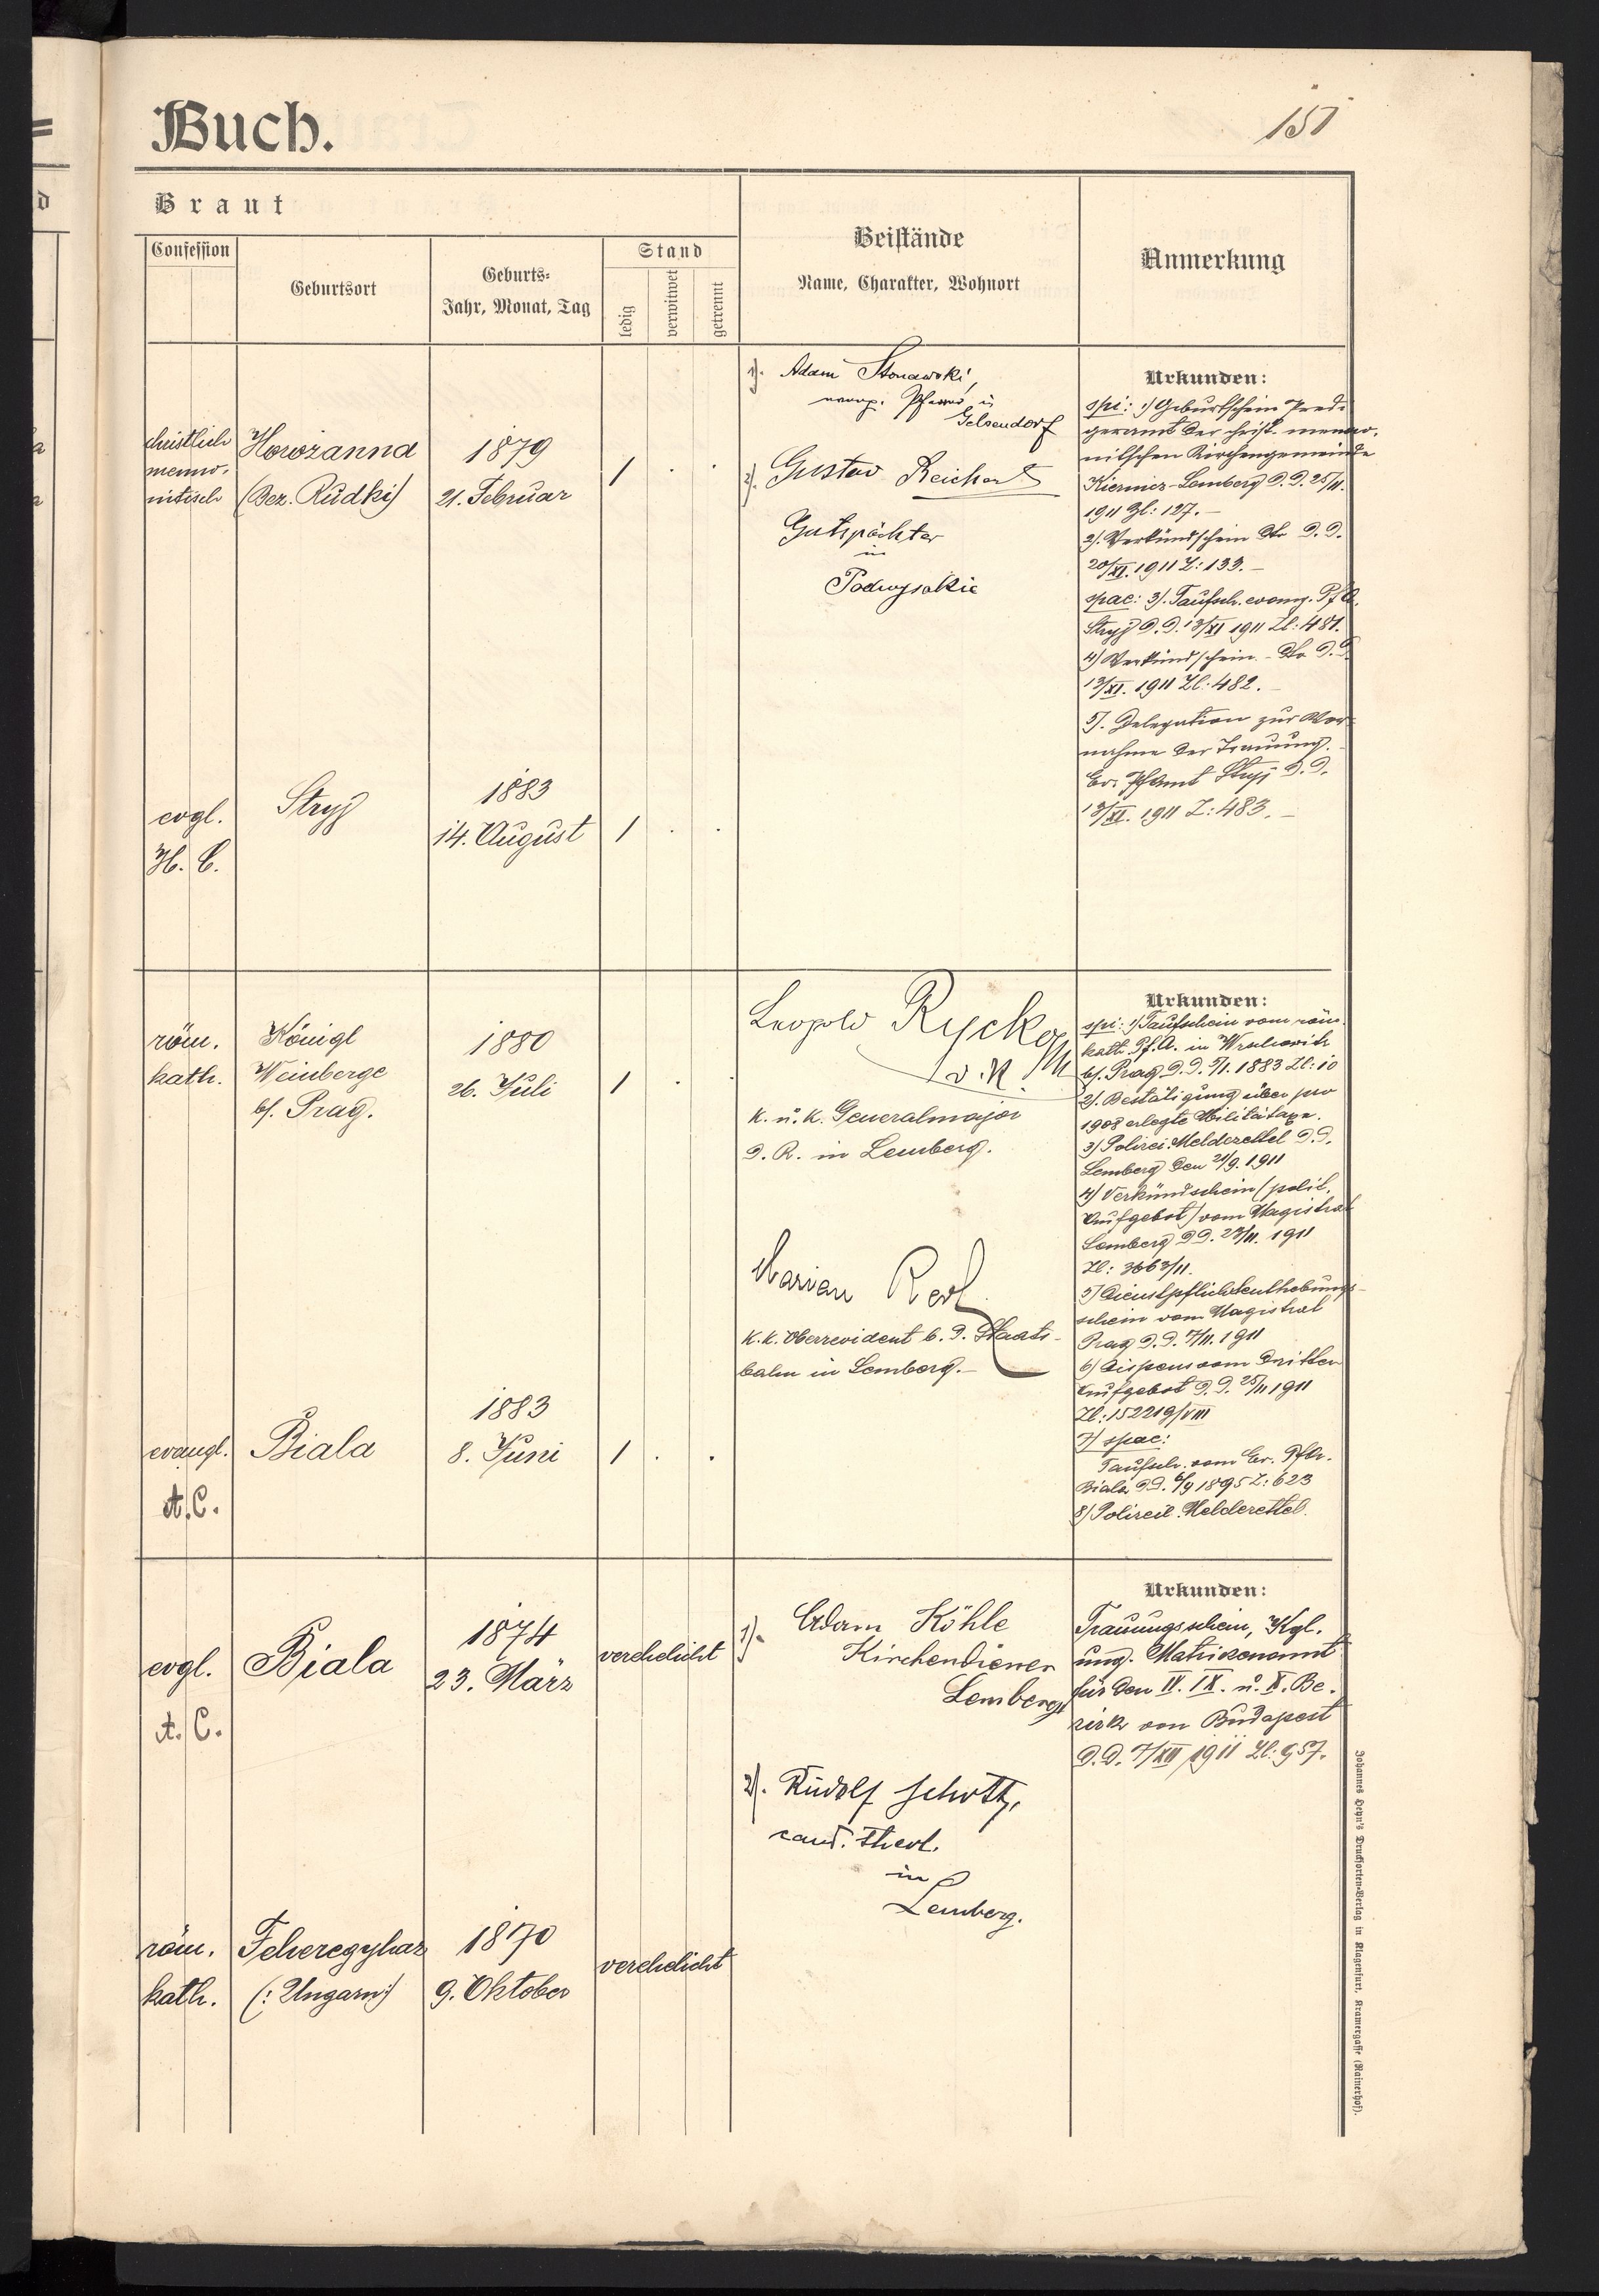 Buch.
151
Braut
Confession
Geburtsort
Geburts-
Jahr, Monat, Tag
Stand
ledig
verwitwet
getrennt
Beistände
Name, Charakter, Wohnort
Anmerkung
christlich
menno-
nitisch
Horożanna
(Bez. Rudki)
1879
21. Februar
1
evgl.
H. C.
Stryj
1883
14. August
1
1). Adam Stonawski,
evang. Pfarrer in
Gelsendorf
2). Gustav Reichert
Gutspächter
in
Podwysokie
Urkunden:
spi: 1) Geburtschein Predi-
geramt der christ. menno-
nitschen Kirchengemeinde
Kiernica-Lemberg d. d. 25/11.
1911 Zl: 127.—
2). Verkündschein dto d. d.
20/XI. 1911 Z: 133.—
spae: 3). Taufsch. evang. Pf
Stryj d. d. 13/XI 1911 Zl: 481.
4) Verkündschein - dto d. d.
13/XI. 1911 Zl. 482.—
5). Delegation zur Vor-
nahme der Trauung.
Ev. Pfamt Stryj d. d.
13/XI. 1911 Z: 483.—
röm.
kath.
Königl
Weinberge
b/. Prag.
1880
26. Juli
1
evangl.
A. C.
Biala
1883
8. Juni
1
Leopold
k. u. k. Generalmajor
d. R. in Lemberg.
Marian
k. k. Oberrevident b. d. Staats-
bahn in Lemberg.—
Urkunden:
spi: 1) Taufschein vom röm.
kath. Pf. A. in Wrschowitz
b/. Prag d. d. 5/1. 1883 Zl: 10
2). Bestätigung über pro
1908 erlegte Militärtaxe.
3) Polizei. Meldezettel d. d.
Lemberg den 21/9. 1911
4) Verkündschein (polit.
Aufgebot) vom Magistrat
Lemberg d. d. 23/11. 1911
Zl: 3663/11.
5) Dienstpflichtenthebungs-
schein vom Magistrat
Prag d. d. 7/11. 1911
6) Dispens vom dritten
Aufgebot d. d. 25/11 1911
Zl: 152219/VIII
7) spae:
Taufsch. vom Ev. Pf
Biala d. d. 6/9 1895 Z: 623
8) Polizeil. Meldezettel.
evgl.
A. C.
Biala
1874
23. März
verehelicht
röm.
kath.
Feheregyhaz
(: Ungarn :)
1870
9. Oktober
verehelicht
1). Adam Köhle
Kirchendiener
Lemberg
2). Rudolf Schott,
cand. theol.
in
Lemberg.
Urkunden:
Trauungsschein, Kgl.
ung. Matrikenamt
für den IV. IX. u. X. Be-
zirk von Budapest
d. d. 7/XII 1911 Zl: 957.
Johannes Heyn's Drucksorten-Verlag in Klagenfurt, Kramergasse (Rainerhof).